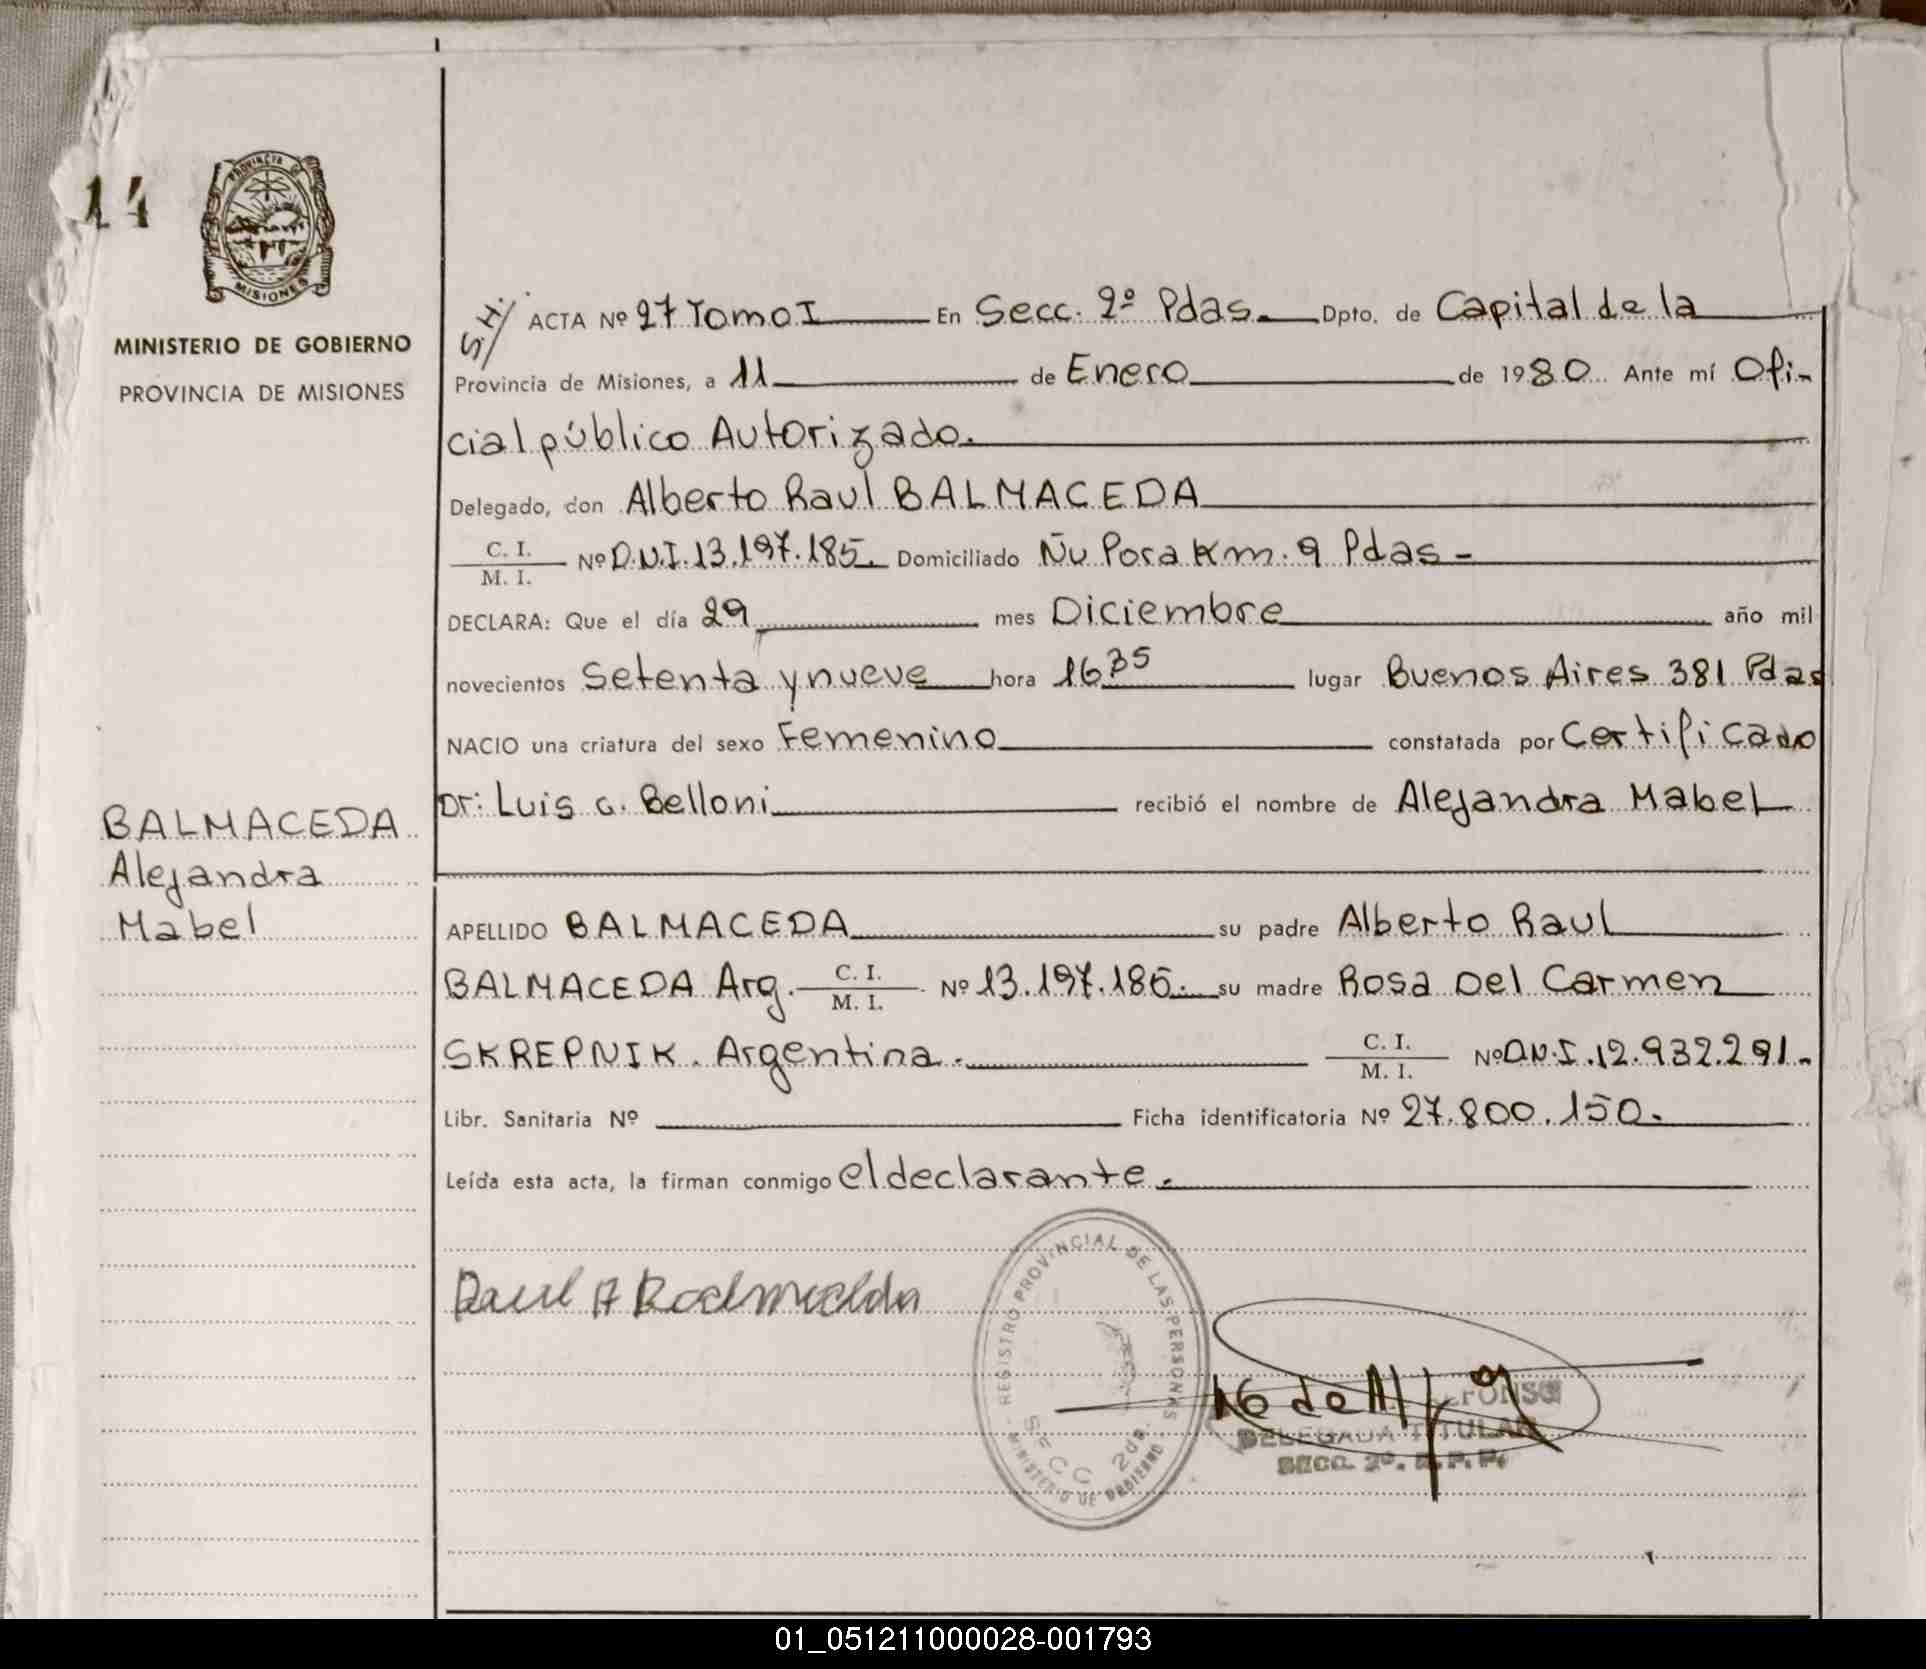 14
PROVINCIA DE
MISIONES
MINISTERIO DE GOBIERNO
PROVINCIA DE MISIONES
S.H. ACTA Nº 27 Tomo I En Secc. 2º Pdas. Dpto. de Capital de la
Provincia de Misiones, a 11 de Enero de 1980 Ante mí Ofi-
cial público Autorizado.
Delegado, don Alberto Raul BALMACEDA
C. I.
M. I. Nº D.N.I. 13.197.185. Domiciliado Ñu Pora Km. 9 Pdas -
DECLARA: Que el día 29 mes Diciembre año mil
novecientos Setenta y nueve hora 16 35 lugar Buenos Aires 381 Pdas
NACIO una criatura del sexo Femenino constatada por Certificado
Dr: Luis G. Belloni recibió el nombre de Alejandra Mabel
BALMACEDA
Alejandra
Mabel
APELLIDO BALMACEDA su padre Alberto Raul
BALMACEDA Arg. C. I.
M. I. Nº 13.197.185. su madre Rosa Del Carmen
SKREPNIK. Argentina. C. I.
M. I. Nº D.N.I. 12.932.291.
Libr. Sanitaria Nº Ficha identificatoria Nº 27.800.150.
Leída esta acta, la firman conmigo el declarante.
REGISTRO PROVINCIAL DE LAS PERSONAS
SECC 2da.
MINISTERIO DE GOBIERNO
DELEGADA TITULAR
SECC. 2º. R.P.P.
01_051211000028-001793